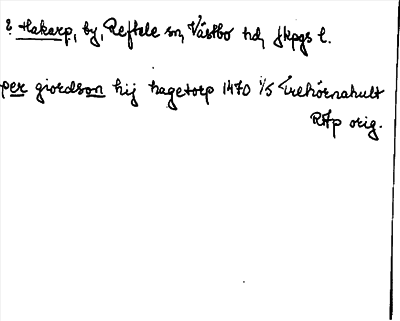 ? Hakarp, by, Reftele sn, Västbo hd, Jkpgs l.
per giordson hij hagetorp 1470 1/5 Trehörnahult
RAp orig.